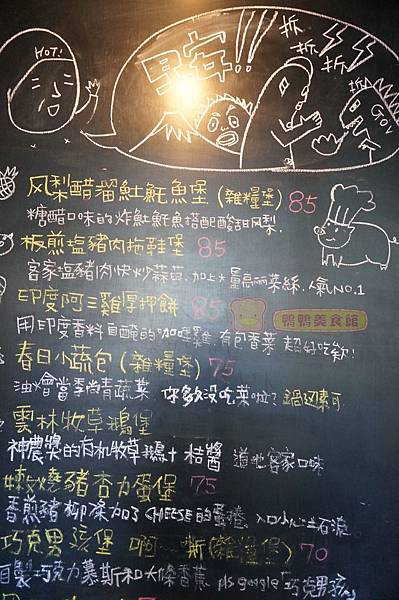 HOT!
早安!!!
拆 拆 拆
GOV
风梨醋溜魠魠魚堡 (雜糧堡) 85
糖醋口味的炸魠魠魚搭配酸甜风梨.
板煎塩豬肉拖鞋堡 85
客家塩豬肉快炒蒜苗.加上大量高麗菜絲.人氣NO.1
印度阿三雞厚抑餅 85
鴨鴨美食館
用印度香料自醃的咖哩雞.有包香菜 超好吃欸!
春日小蔬包(雜糧堡) 75
油燴當季尚青蔬菜 你多久沒吃菜啦?
雲林牧草鵝堡
神農獎的有机牧草鵝+桔醬 道地客家口味
豬杏力蛋堡 75
香煎豬柳條加了CHEESE的蛋捲
巧克男孩堡 啊 嘶(雜糧堡) 70
自製巧克力慕斯和大條香蕉 pls google「巧克男孩」